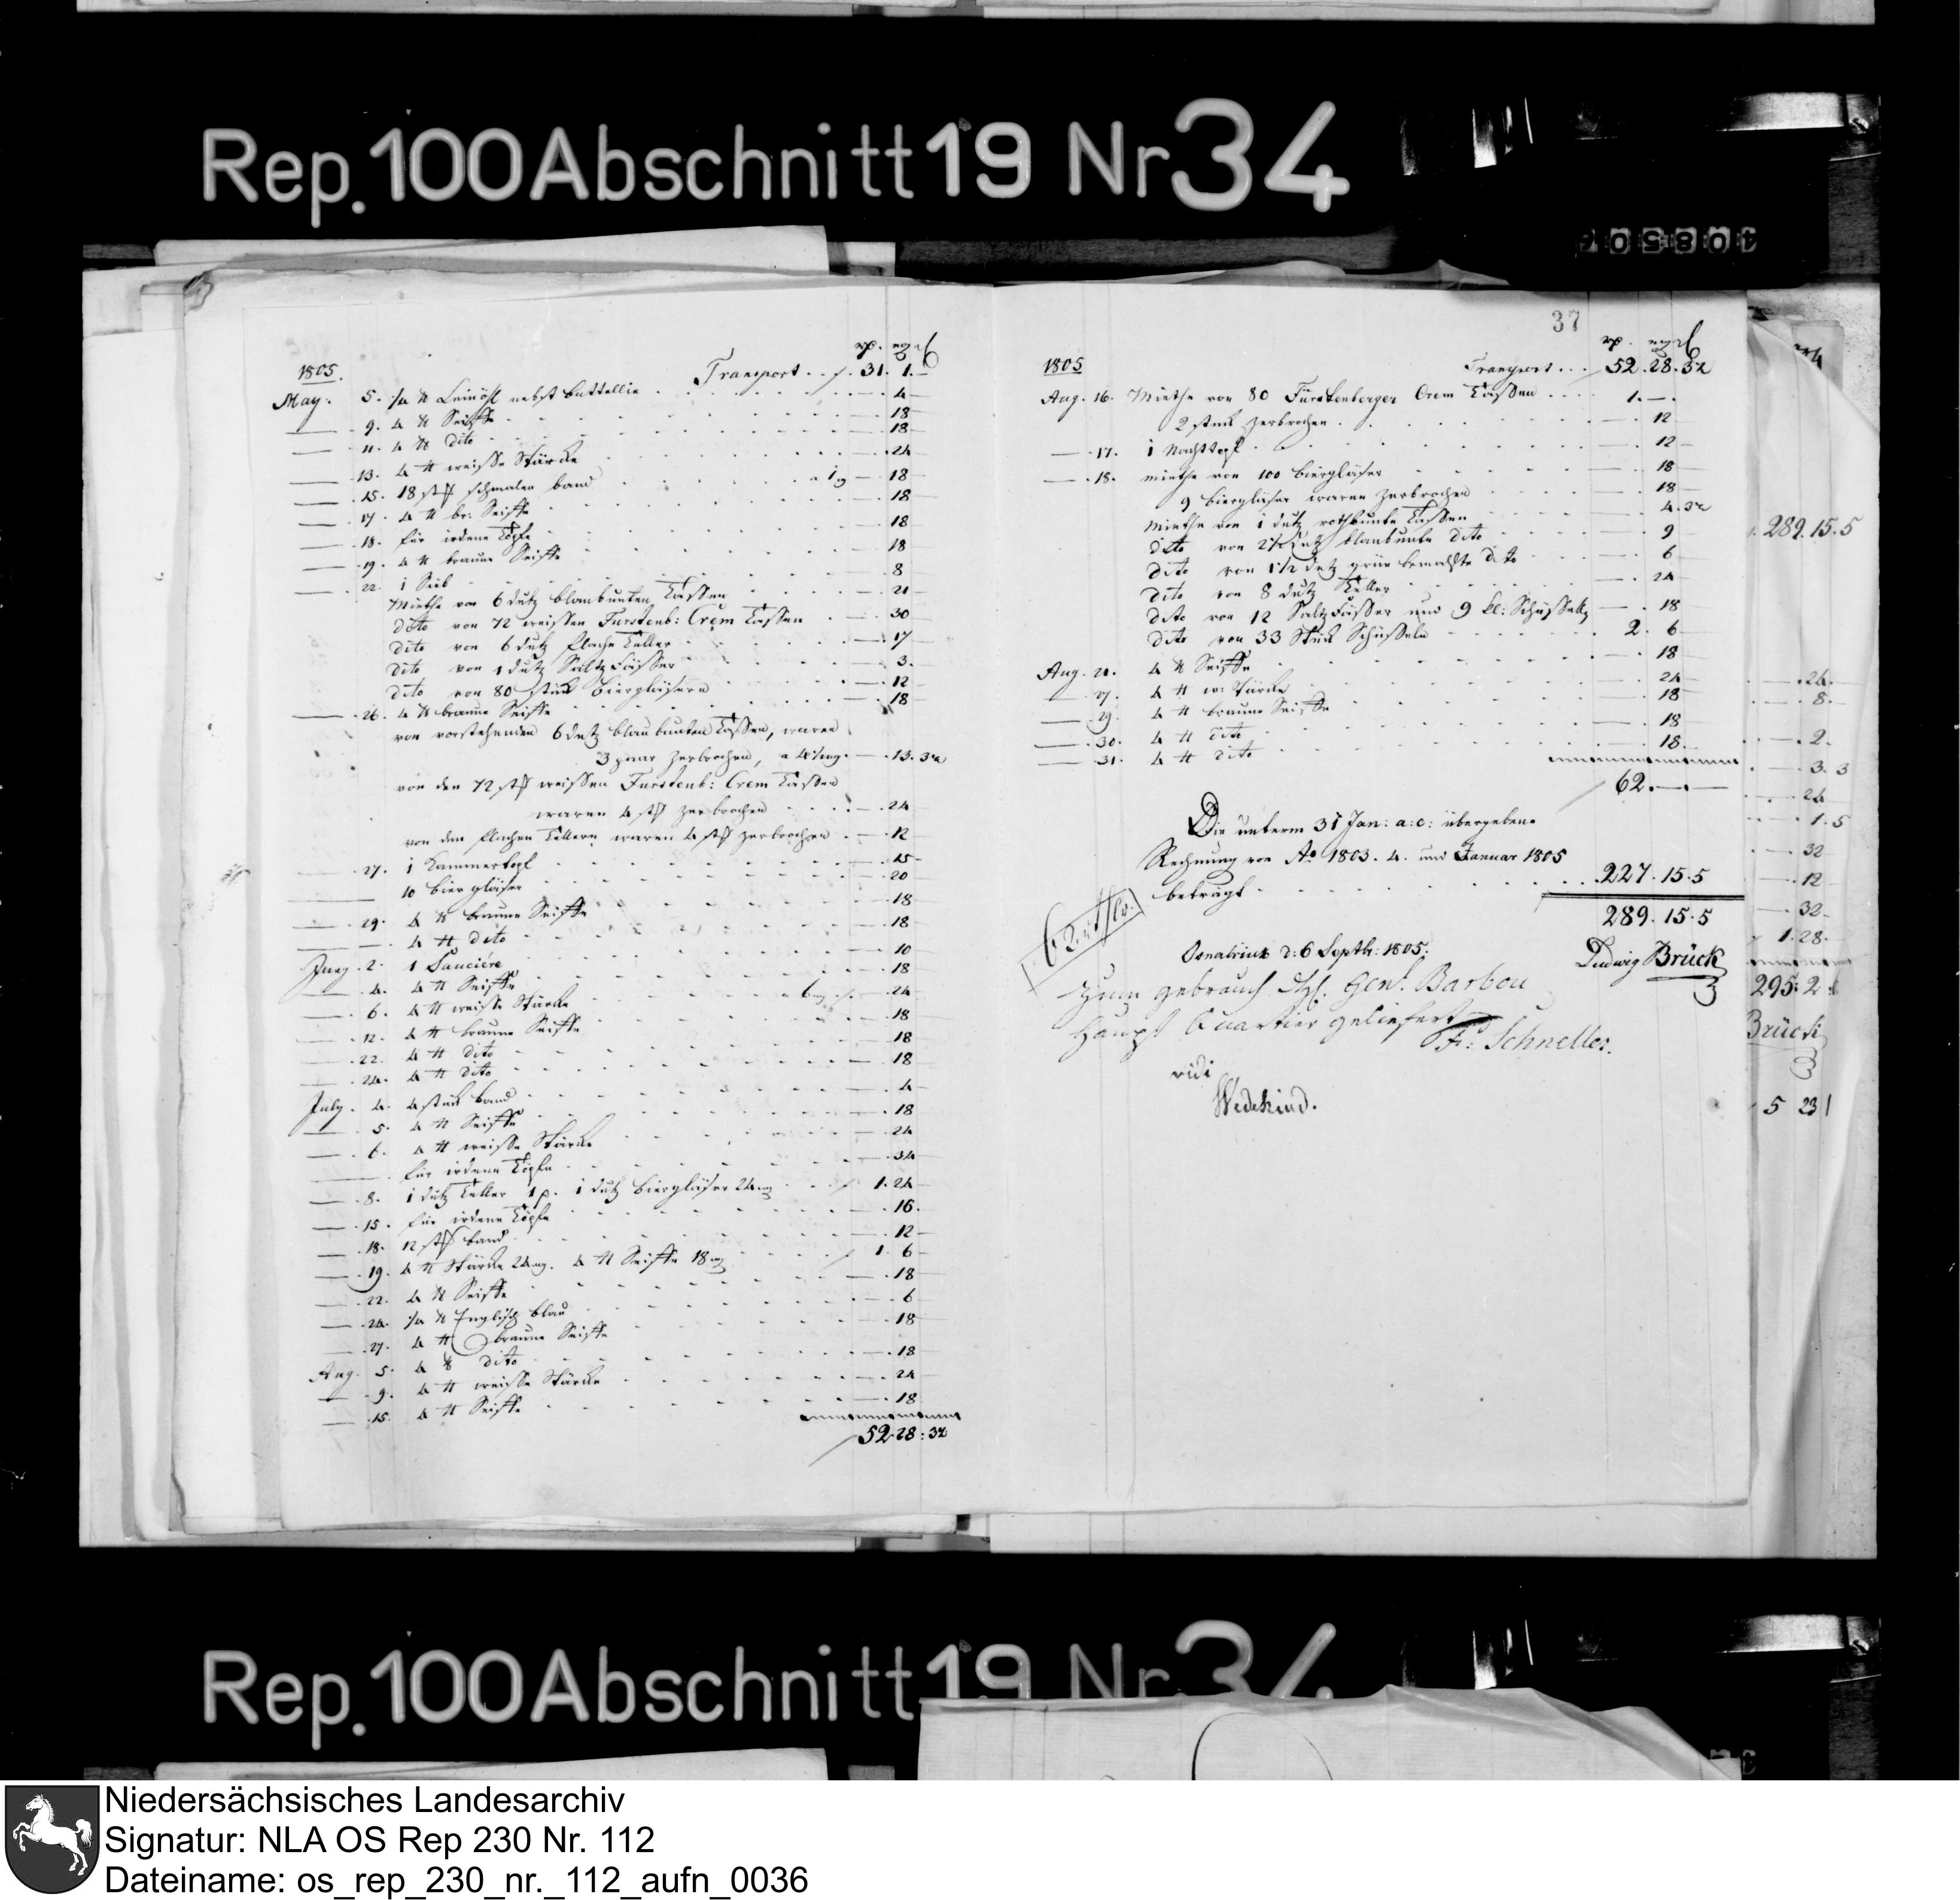 Rep. 100 Abschnitt 19 Nr 34
408504
1805. Transport . . 31. 1. —
May. 5. 1/4 ℔ Leinöhl nebst buttellie — 4
— 9. 4 ℔ Seiffe — 18
— 11. 4 ℔ dito — 18
— 13. 4 ℔ weisse Stärcke — 24
— 15. 18 stck schmalen band — 18
— 17. 4 ℔ br: Seiffe — 18
— 18. für irdene Töpfe — 18
— 19. 4 ℔ braune Seiffe — 18
— 22. 1 Sieb — 8
Miethe von 6 dutz blaubunten Tassen — 21
dito von 72 weissen Furstenb: Crem Tassen — 30
dito von 6 dutz flache Teller — 17
dito von 1 dutz Saltzfässer — 3.
dito von 80 stück Biergläsern — 12
— 26. 4 ℔ braune Seiffe — 18
von vorstehenden 6 dutz blaubunten Tassen, waren
3 paar zerbrochen, — 13. 3 1/2
von den 72 stck weissen Furstenb: Crem Tassen
waren 4 stck zerbrochen — 24
von den flachen Tellern waren 4 stck zerbrochen — 12
27. 1 Kammertopf — 15
10 Biergläser — 20
— 29. 4 ℔ braune Seiffe — 18
— 4 ℔ dito — 18
Juny 2. 1 Sauciére — 10
— 4. 4 ℔ Seiffe — 18
— 6. 4 ℔ weisse Stärcke — 24
— 12. 4 ℔ braune Seiffe — 18
— 22. 4 ℔ dito — 18
— 24. 4 ℔ dito — 18
July. 4. 4 stück band — 4
— 5. 4 ℔ Seiffe — 18
— 6. 4 ℔ weisse Stärcke — 24
— für irdene Töpfe — 34
— 8. 1 dutz Teller 1 p. 1 dutz Biergläser 24 mg 1. 24
— 15. für irdene Töpfe — 16.
— 18. 12 stck band — 12
— 19. 4 ℔ Stärcke 24 mg. 4 ℔ Seiffe 18 mg 1. 6
— 22. 4 ℔ Seiffe — 18
— 24. 1/4 ℔ Englisch blau — 6
— 27. 4 ℔ braune Seiffe — 18
Aug. 5. 4 ℔ dito — 18
— 9. 4 ℔ weisse Stärcke — 24
— 15. 4 ℔ Seiffe — 18
52. 28. 3 1/2
37
1805 Transport . . . 52. 28. 3 1/2
Aug. 16. Miethe von 80 Fürstenberger Crem Tassen . . . . 1. —.
2 stück zerbrochen — 12
— 17. 1 Nachttopf — 12
— 18. miethe von 100 Biergläser — 18
9 biergläser waren zerbrochen — 18
Miethe von 1 dutz rothbunte Tassen — 4. 3 1/2
dito von 2 1/2 dutz blaubunte dito — 9
dito von 1 1/2 dutz grün bemahlte dito — 6
dito von 8 dutz Teller — 24
dito von 12 Saltzfässer und 9 kl: Schüsseln — 18
dito von 33 Stück Schüsseln 2. 6
Aug. 21. 4 ℔ Seiffe — 18
— 27. 4 ℔ w: Stärcke — 24
— 29. 4 ℔ braune Seiffe — 18
— 30. 4 ℔ dito — 18
— 31. 4 ℔ dito — 18.
62. — . —
Die unterm 31 Jan: a: c: übergebene
Rechnung von Ao 1803. 4. und Januar 1805
beträgt . . . 227. 15. 5
289. 15. 5
Osnabrück d: 6 Septbr: 1805.
Ludwig Brück
Zum gebrauch Genl. Barbou
Haupt Quartier geliefert
Fr: Schneller.
vidi
Wedekind.
289. 15. 5
24.
8.
2.
3. 3
24
1. 5
32
12
32
1. 28.
295. 2
Brück
5 23
Rep. 100 Abschnitt 19 Nr 34
Niedersächsisches Landesarchiv
Signatur: NLA OS Rep 230 Nr. 112
Dateiname: os_rep_230_nr._112_aufn_0036